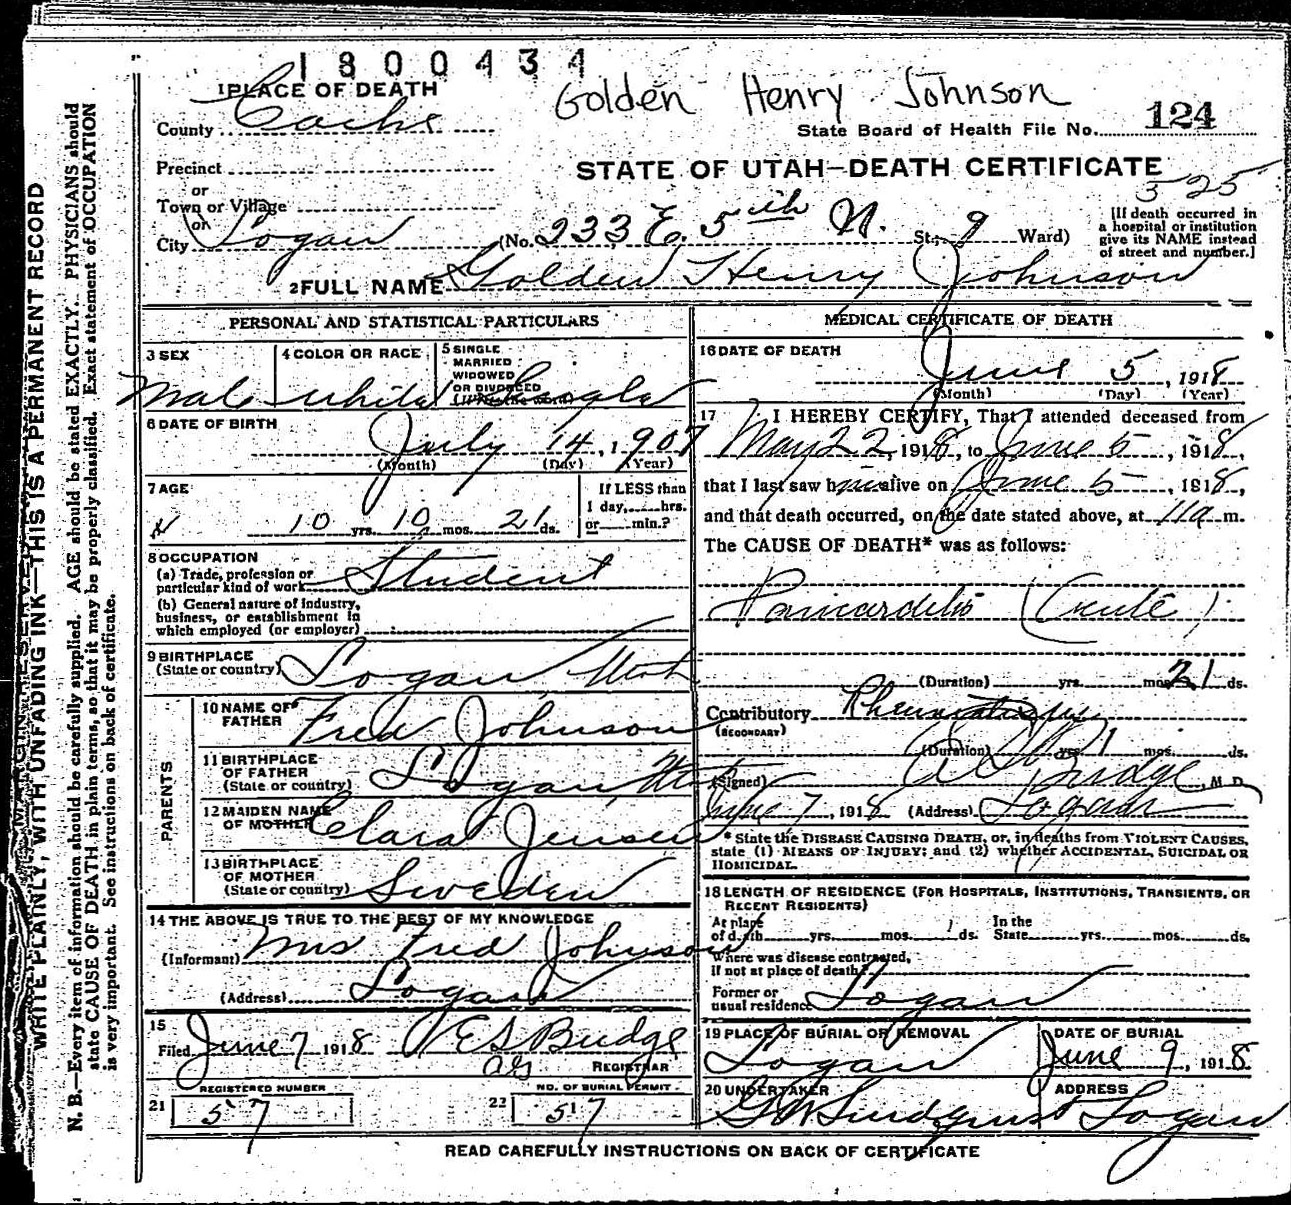 1800434
Golden Henry Johnson
1 PLACE OF DEATH
County Cache
State Board of Health File No. 124
Precinct
STATE OF UTAH—DEATH CERTIFICATE
525
or
Town or Village
or
City Logan (No. 233 E. 5th N. St.; 9 Ward)
[If death occurred in
a hospital or institution
give its NAME instead
of street and number.]
2 FULL NAME Golden Henry Johnson
PERSONAL AND STATISTICAL PARTICULARS
3 SEX
Male
4 COLOR OR RACE
White
5 SINGLE
MARRIED
WIDOWED
OR DIVORCED
Single
6 DATE OF BIRTH
July 14, 1907
(Month) (Day) (Year)
7 AGE
10 yrs. 10 mos. 21 ds.
If LESS than
1 day, hrs.
or min.?
8 OCCUPATION
(a) Trade, profession or
particular kind of work Student
(b) General nature of industry,
business, or establishment in
which employed (or employer)
9 BIRTHPLACE
(State or country) Logan Utah
PARENTS
10 NAME OF
FATHER Fred Johnson
11 BIRTHPLACE
OF FATHER
(State or country) Logan, Utah
12 MAIDEN NAME
OF MOTHER Clara Jensen
13 BIRTHPLACE
OF MOTHER
(State or country) Sweden
14 THE ABOVE IS TRUE TO THE BEST OF MY KNOWLEDGE
(Informant) Mrs Fred Johnson
(Address) Logan
15
Filed June 7 1918 E S Budge
REGISTRAR
REGISTERED NUMBER
21 57
NO. OF BURIAL PERMIT
22 57
MEDICAL CERTIFICATE OF DEATH
16 DATE OF DEATH
June 5, 1918
(Month) (Day) (Year)
17 I HEREBY CERTIFY, That I attended deceased from
May 22, 1918, to June 5, 1918,
that I last saw him alive on June 5, 1918,
and that death occurred, on the date stated above, at 11 a m.
The CAUSE OF DEATH* was as follows:
(acute)
(Duration) yrs. mos. 21 ds.
Contributory
(SECONDARY)
(Duration) yrs. 1 mos. ds.
(Signed) Budge, M. D.
June 7, 1918 (Address) Logan
* State the DISEASE CAUSING DEATH, or, in deaths from VIOLENT CAUSES,
state (1) MEANS OF INJURY; and (2) whether ACCIDENTAL, SUICIDAL OR
HOMICIDAL.
18 LENGTH OF RESIDENCE (FOR HOSPITALS, INSTITUTIONS, TRANSIENTS, OR
RECENT RESIDENTS)
At place In the
of death yrs. mos. ds. State yrs. mos. ds.
Where was disease contracted,
if not at place of death?
Former or
usual residence Logan
19 PLACE OF BURIAL OR REMOVAL
Logan
DATE OF BURIAL
June 9, 1918
20 UNDERTAKER
ADDRESS
Logan
READ CAREFULLY INSTRUCTIONS ON BACK OF CERTIFICATE
WRITE PLAINLY, WITH UNFADING INK—THIS IS A PERMANENT RECORD
N. B.—Every item of information should be carefully supplied. AGE should be stated EXACTLY. PHYSICIANS should
state CAUSE OF DEATH in plain terms, so that it may be properly classified. Exact statement of OCCUPATION
is very important. See instructions on back of certificate.